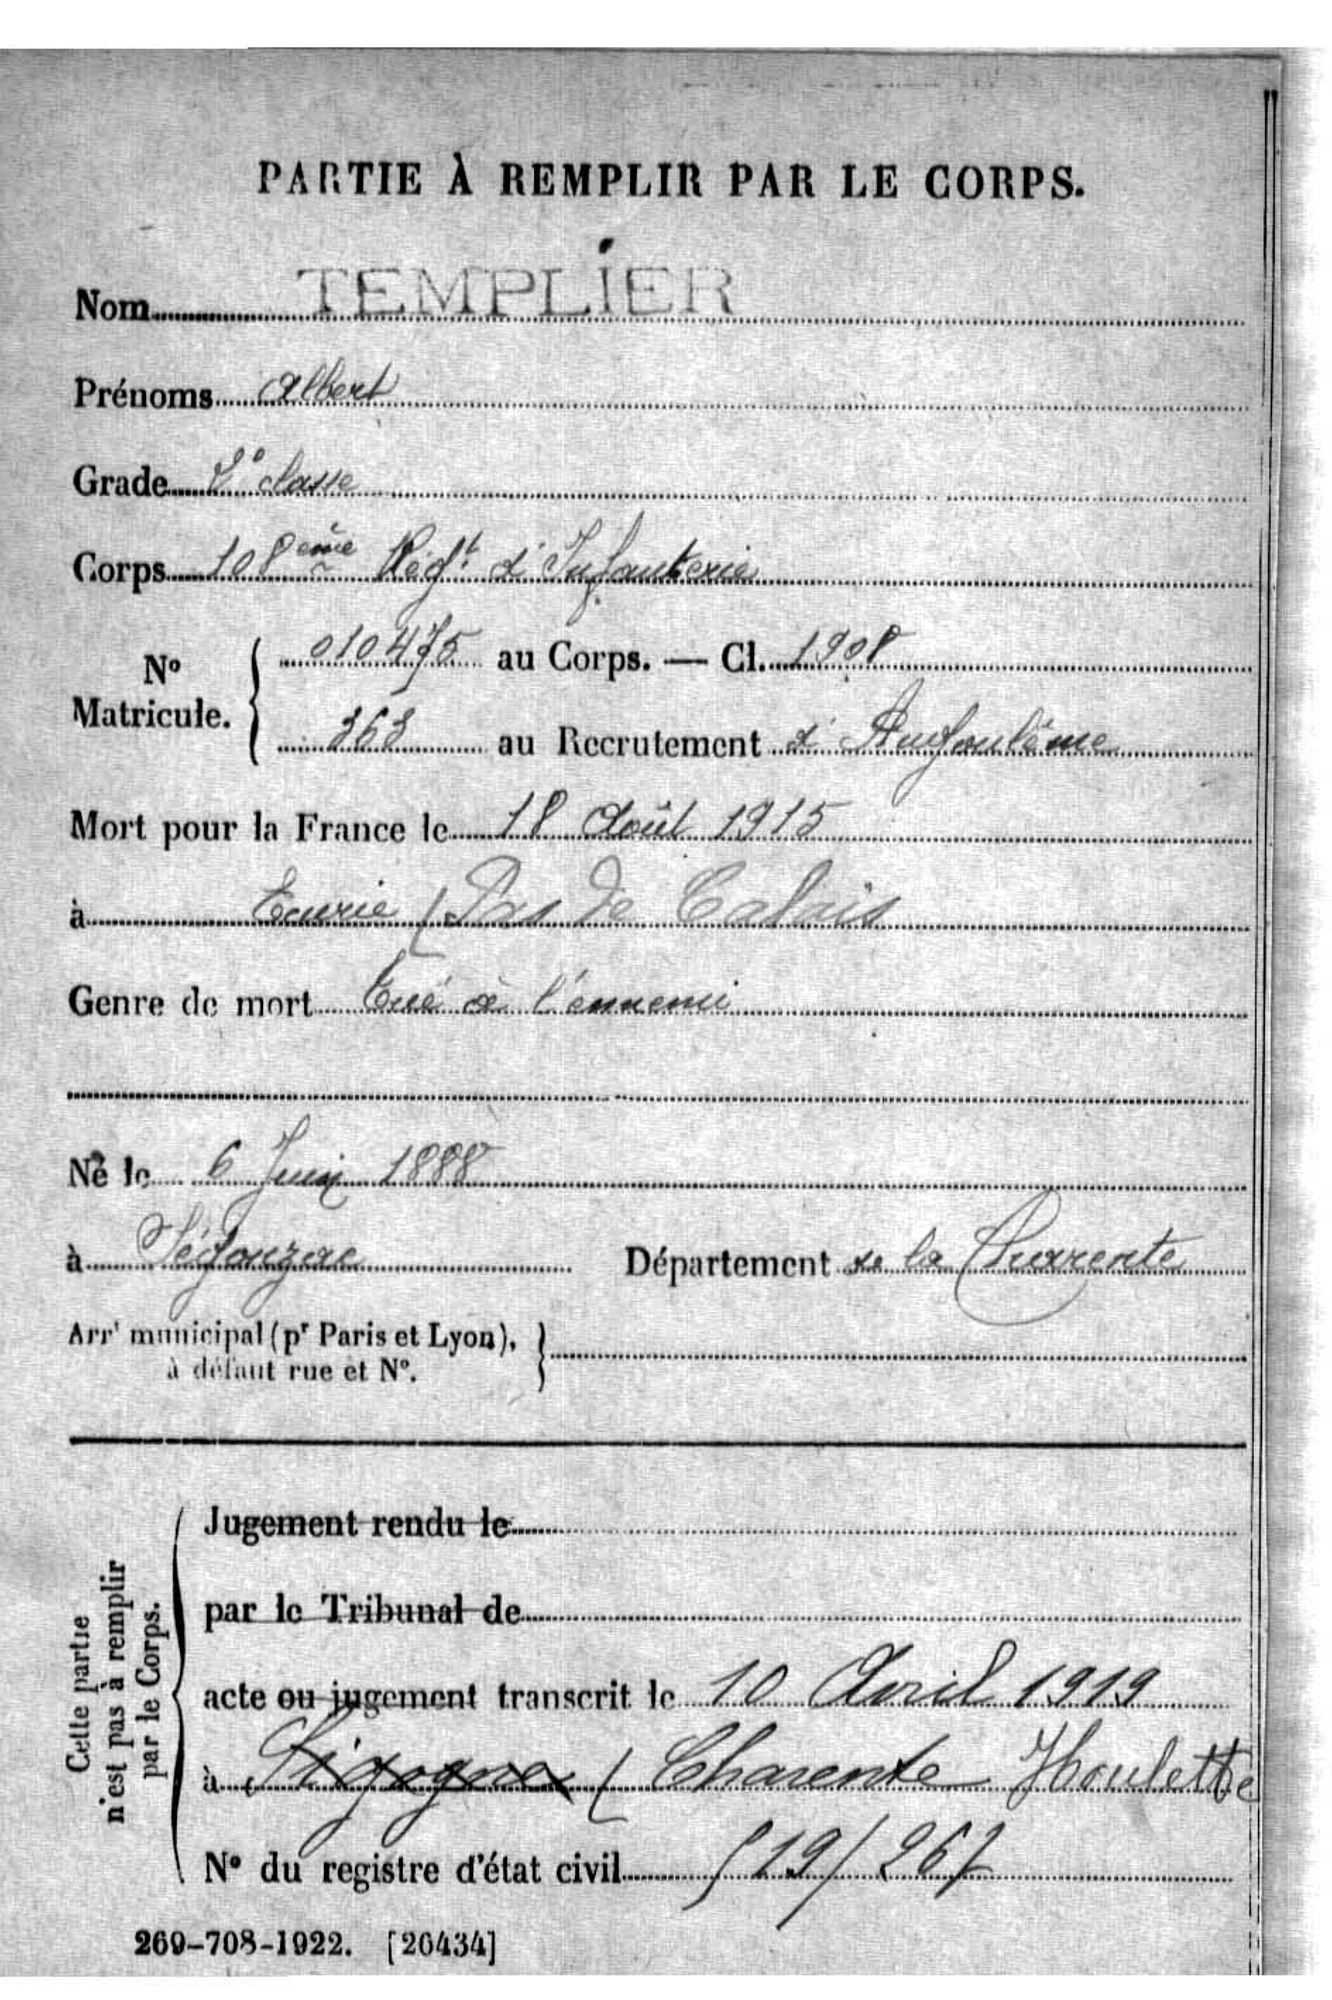 PARTIE À REMPLIR PAR LE CORPS.
Nom TEMPLIER
Prénoms Albert
Grade 2e classe
Corps 108ème Régt d'Infanterie
No Matricule. { 010475 au Corps. — Cl. 1908
363 au Recrutement d'Angoulême
Mort pour la France le 18 Août 1915
à Ecurie (Pas de Calais
Genre de mort Tué à l'ennemi
Né le 6 Juin 1888
à Ségonzac Département de la Charente
Arrt municipal (pr Paris et Lyon), à défaut rue et No. }
Cette partie n'est pas à remplir par le Corps.
Jugement rendu le
par le Tribunal de
acte ou jugement transcrit le 10 Avril 1919
à Sigogne (Charente Houlette
No du registre d'état civil 519/267
269-708-1922. [26434]